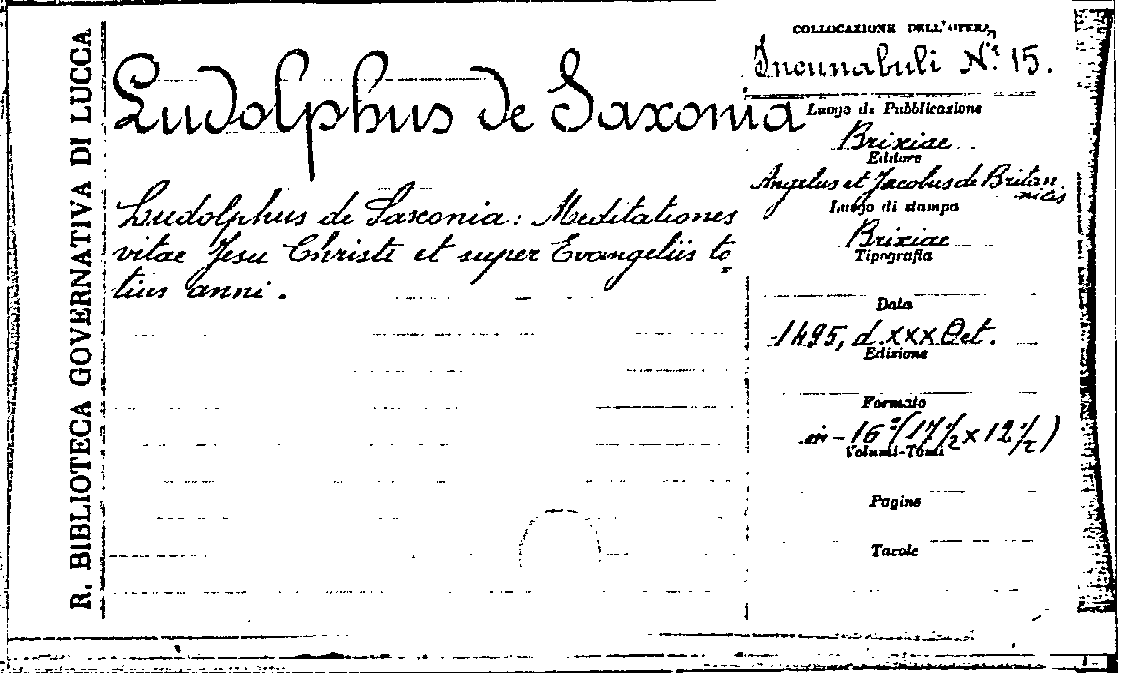 R. BIBLIOTECA GOVERNATIVA DI LUCCA
Ludolphus de Saxonia
Ludolphus de Saxonia: Meditationes
vitae Jesu Christi et super Evangeliis to=
tius anni.
COLLOCAZIONE DELL'OPERA
Incunabuli N.º 15.
Luogo di Pubblicazione
Brixiae
Editore
Angelus et Jacobus de Britan
nicis
Luogo di stampa
Brixiae
Tipografia
Data
1495, d. XXX Oct.
Edizione
Formato
in-16º (17 1/2 x 12 1/2)
Volumi-Tomi
Pagine
Tavole